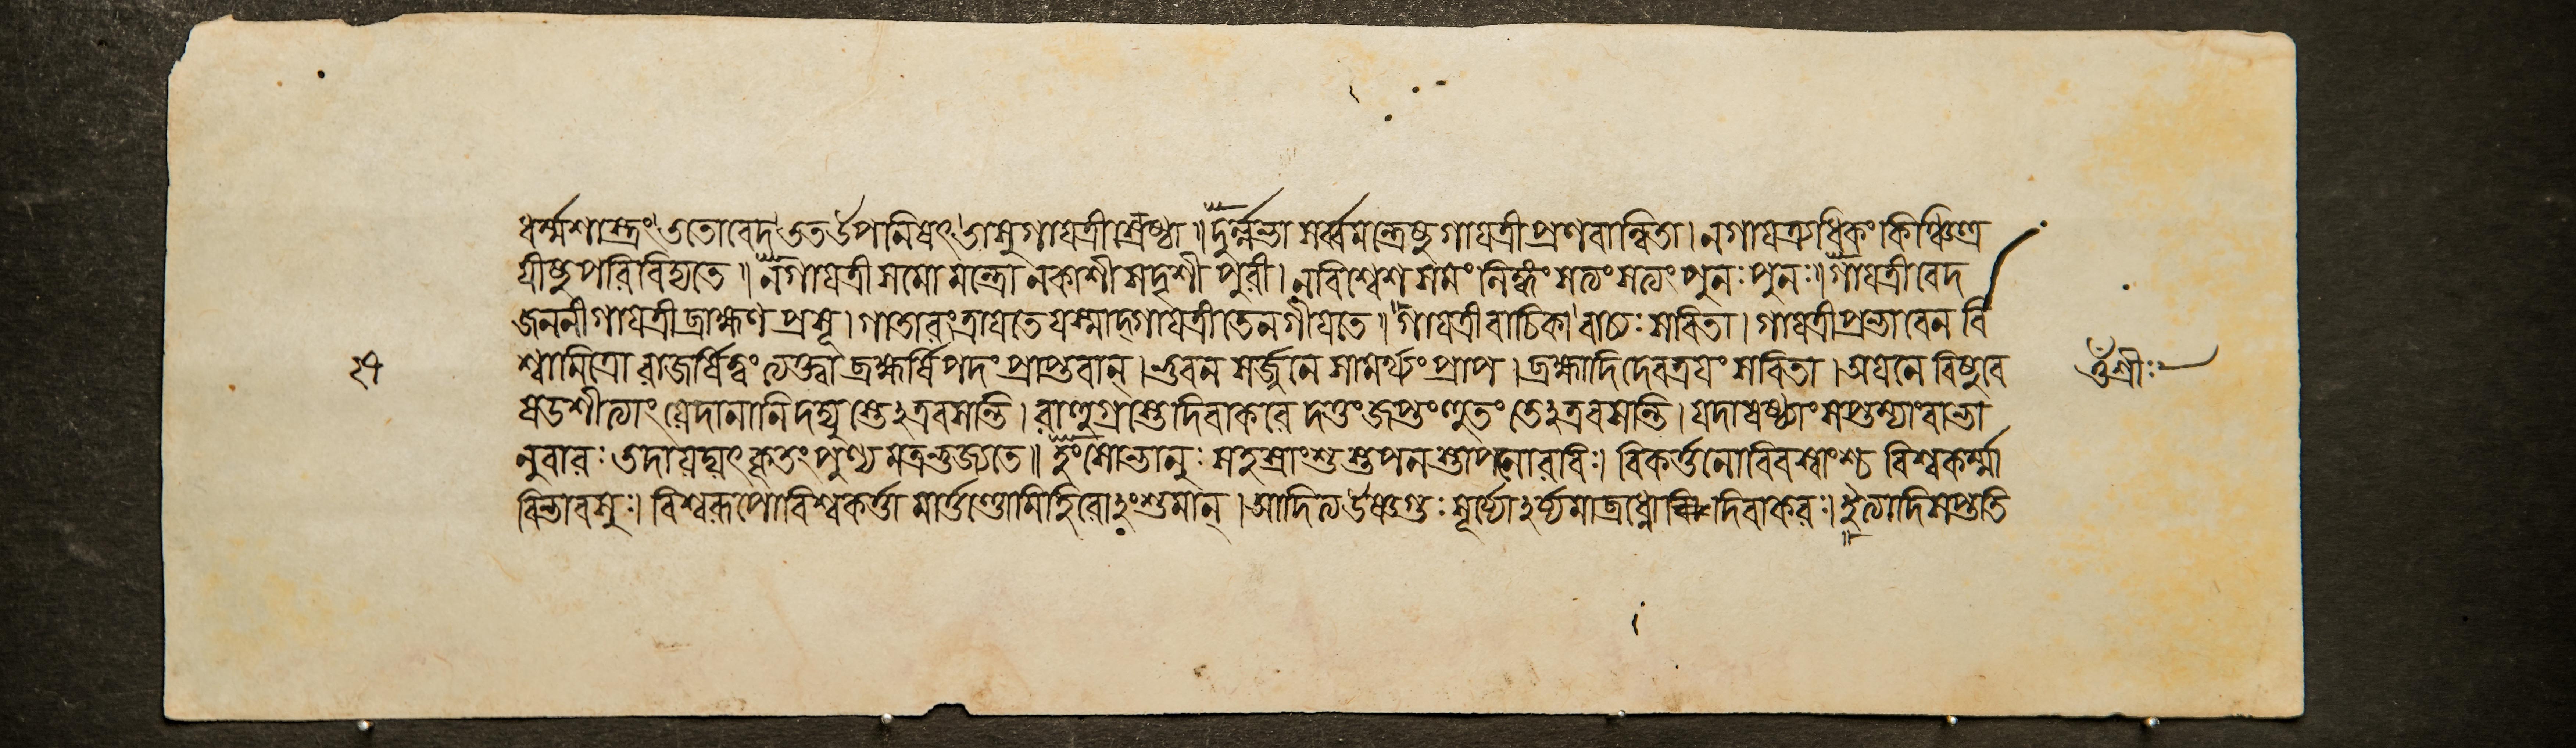 ধর্ম্মশাস্ত্রং ততোবেদ ততউপনিষৎ তাসুগায়ত্রীশ্রেষ্ঠা ॥ দুর্ল্লভা সর্ব্বমন্ত্রেষু গায়ত্রীপ্রণবান্বিতা । নগায়ত্র্যধিকং কিঞ্চিত্ত্র
য়ীষু পরিবিদ্যতে ॥ নগায়ত্রী সমো মন্ত্রো নকাশী সদৃশী পুরী । নবিশ্বেশ সমং লিঙ্গং সত্যং সত্যং পুনঃ পুনঃ॥ গায়ত্রীবেদ
জননী গায়ত্রী ব্রাহ্মণ প্রসূ । গাতারং ত্রায়তে যস্মাদ্গায়ত্রীতেন গীয়তে ॥ গায়ত্রীবাচিকা বাচ্যঃ সবিতা । গায়ত্রীপ্রভাবেন বি
শ্বামিত্রো রাজর্ষিত্বং ত্যক্ত্বা ব্রহ্মর্ষিপদং প্রাপ্তবান্ । ভুবন সর্জ্জনে সামর্থ্যং প্রাপ । ব্রহ্মাদিদেবত্রয়ং সবিতা । অয়নে বিষুবে
ষডশীত্যাং য়েদানানি দদ্যুস্তেঽত্রবসন্তি । রাহুগ্রস্তে দিবাকরে দত্তং জপ্তং হুতং তেঽত্রবসন্তি । যদাষষ্ঠ্যাং সপ্তম্যাংবাভা
নুবারঃ তদায়দ্যৎ কৃতং পুণ্যমত্রভুজ্যতে ॥ হংসোভানুঃ সহস্রাংশুস্তপনস্তাপনোরবিঃ। বিকর্ত্তনোবিবস্বাংশ্চ বিশ্বকর্ম্মা
বিভাবসুঃ। বিশ্বরূপোবিশ্বকর্ত্তা মার্ত্তণ্ডোমিহিরোঽংশুমান্ । আদিত্যউষ্ণগুঃ সূর্য্যোঽর্য্যমাব্রধ্নো দিবাকরঃ। ইত্যাদিসপ্ততি
২৭
ওঁশ্রীঃ